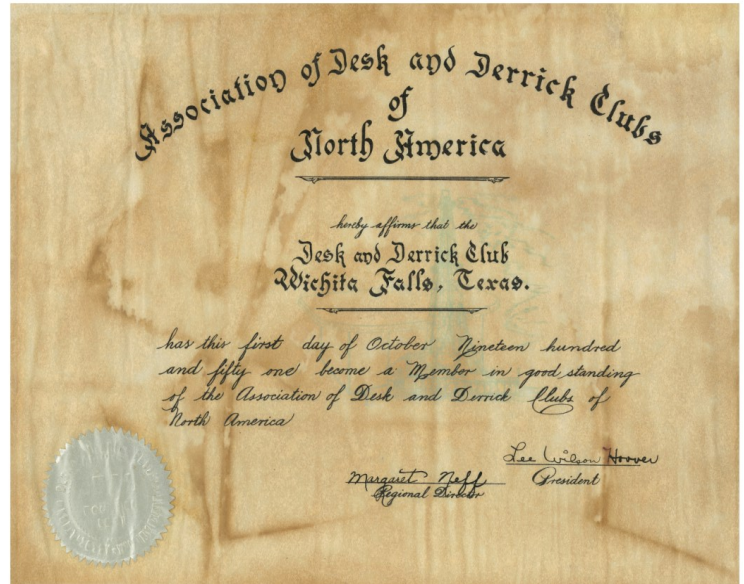 Association of Desk and Derrick Clubs
of
North America
hereby affirms that the
Desk and Derrick Club
Wichita Falls, Texas.
has this first day of October Nineteen hundred
and fifty one become a Member in good standing
of the Association of Desk and Derrick Clubs of
North America
Lee Wilson Hoover
President
Margaret Neff
Regional Director